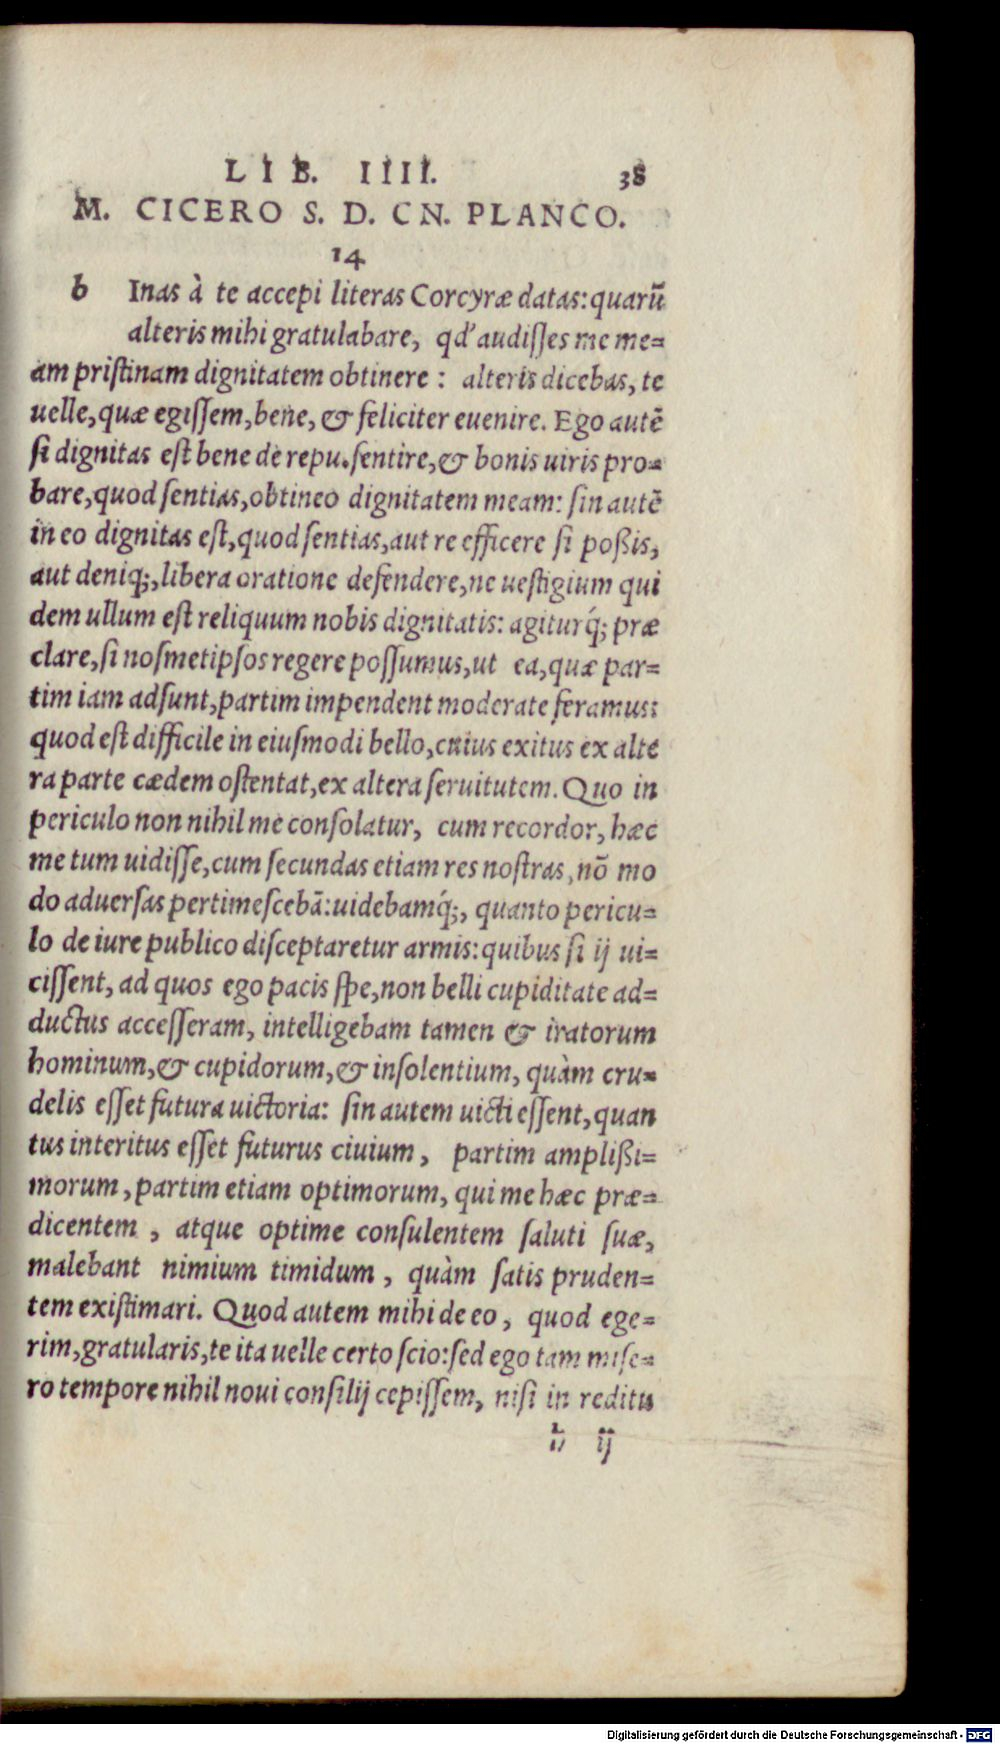 LIB. IIII. 38
M. CICERO S. D. CN. PLANCO.
14
b Inas à te accepi literas Corcyræ datas: quarū
alteris mihi gratulabare, qd' audisses me me=
am pristinam dignitatem obtinere: alteris dicebas, te
uelle, quæ egissem, bene, & feliciter euenire. Ego autē
si dignitas est bene de repu. sentire, & bonis uiris pro=
bare, quod sentias, obtineo dignitatem meam: sin autē
in eo dignitas est, quod sentias, aut re efficere si poßis,
aut deniq;, libera oratione defendere, ne uestigium qui
dem ullum est reliquum nobis dignitatis: agiturq́; præ
clare, si nosmetipsos regere possumus, ut ea, quæ par=
tim iam adsunt, partim impendent moderate feramus:
quod est difficile in eiusmodi bello, cuius exitus ex alte
ra parte cædem ostentat, ex altera seruitutem. Quo in
periculo non nihil me consolatur, cum recordor, hæc
me tum uidisse, cum secundas etiam res nostras, nō mo
do aduersas pertimescebā: uidebamq́;, quanto pericu=
lo de iure publico disceptaretur armis: quibus si ij ui=
cissent, ad quos ego pacis spe, non belli cupiditate ad=
ductus accesseram, intelligebam tamen & iratorum
hominum, & cupidorum, & insolentium, quàm cru=
delis esset futura uictoria: sin autem uicti essent, quan
tus interitus esset futurus ciuium, partim amplißi=
morum, partim etiam optimorum, qui me hæc præ=
dicentem, atque optime consulentem saluti suæ,
malebant nimium timidum, quàm satis pruden=
tem existimari. Quod autem mihi de eo, quod ege=
rim, gratularis, te ita uelle certo scio: sed ego tam mise=
ro tempore nihil noui consilij cepissem, nisi in reditu
h ij
Digitalisierung gefördert durch die Deutsche Forschungsgemeinschaft - DFG